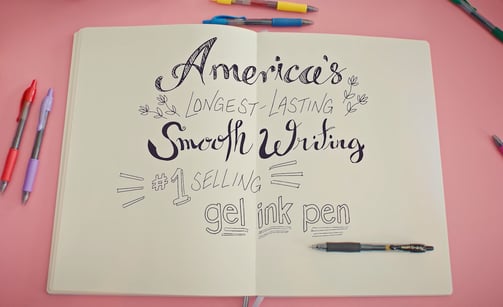 America's
LONGEST-LASTING
Smooth Writing
#1 SELLING
gel ink pen